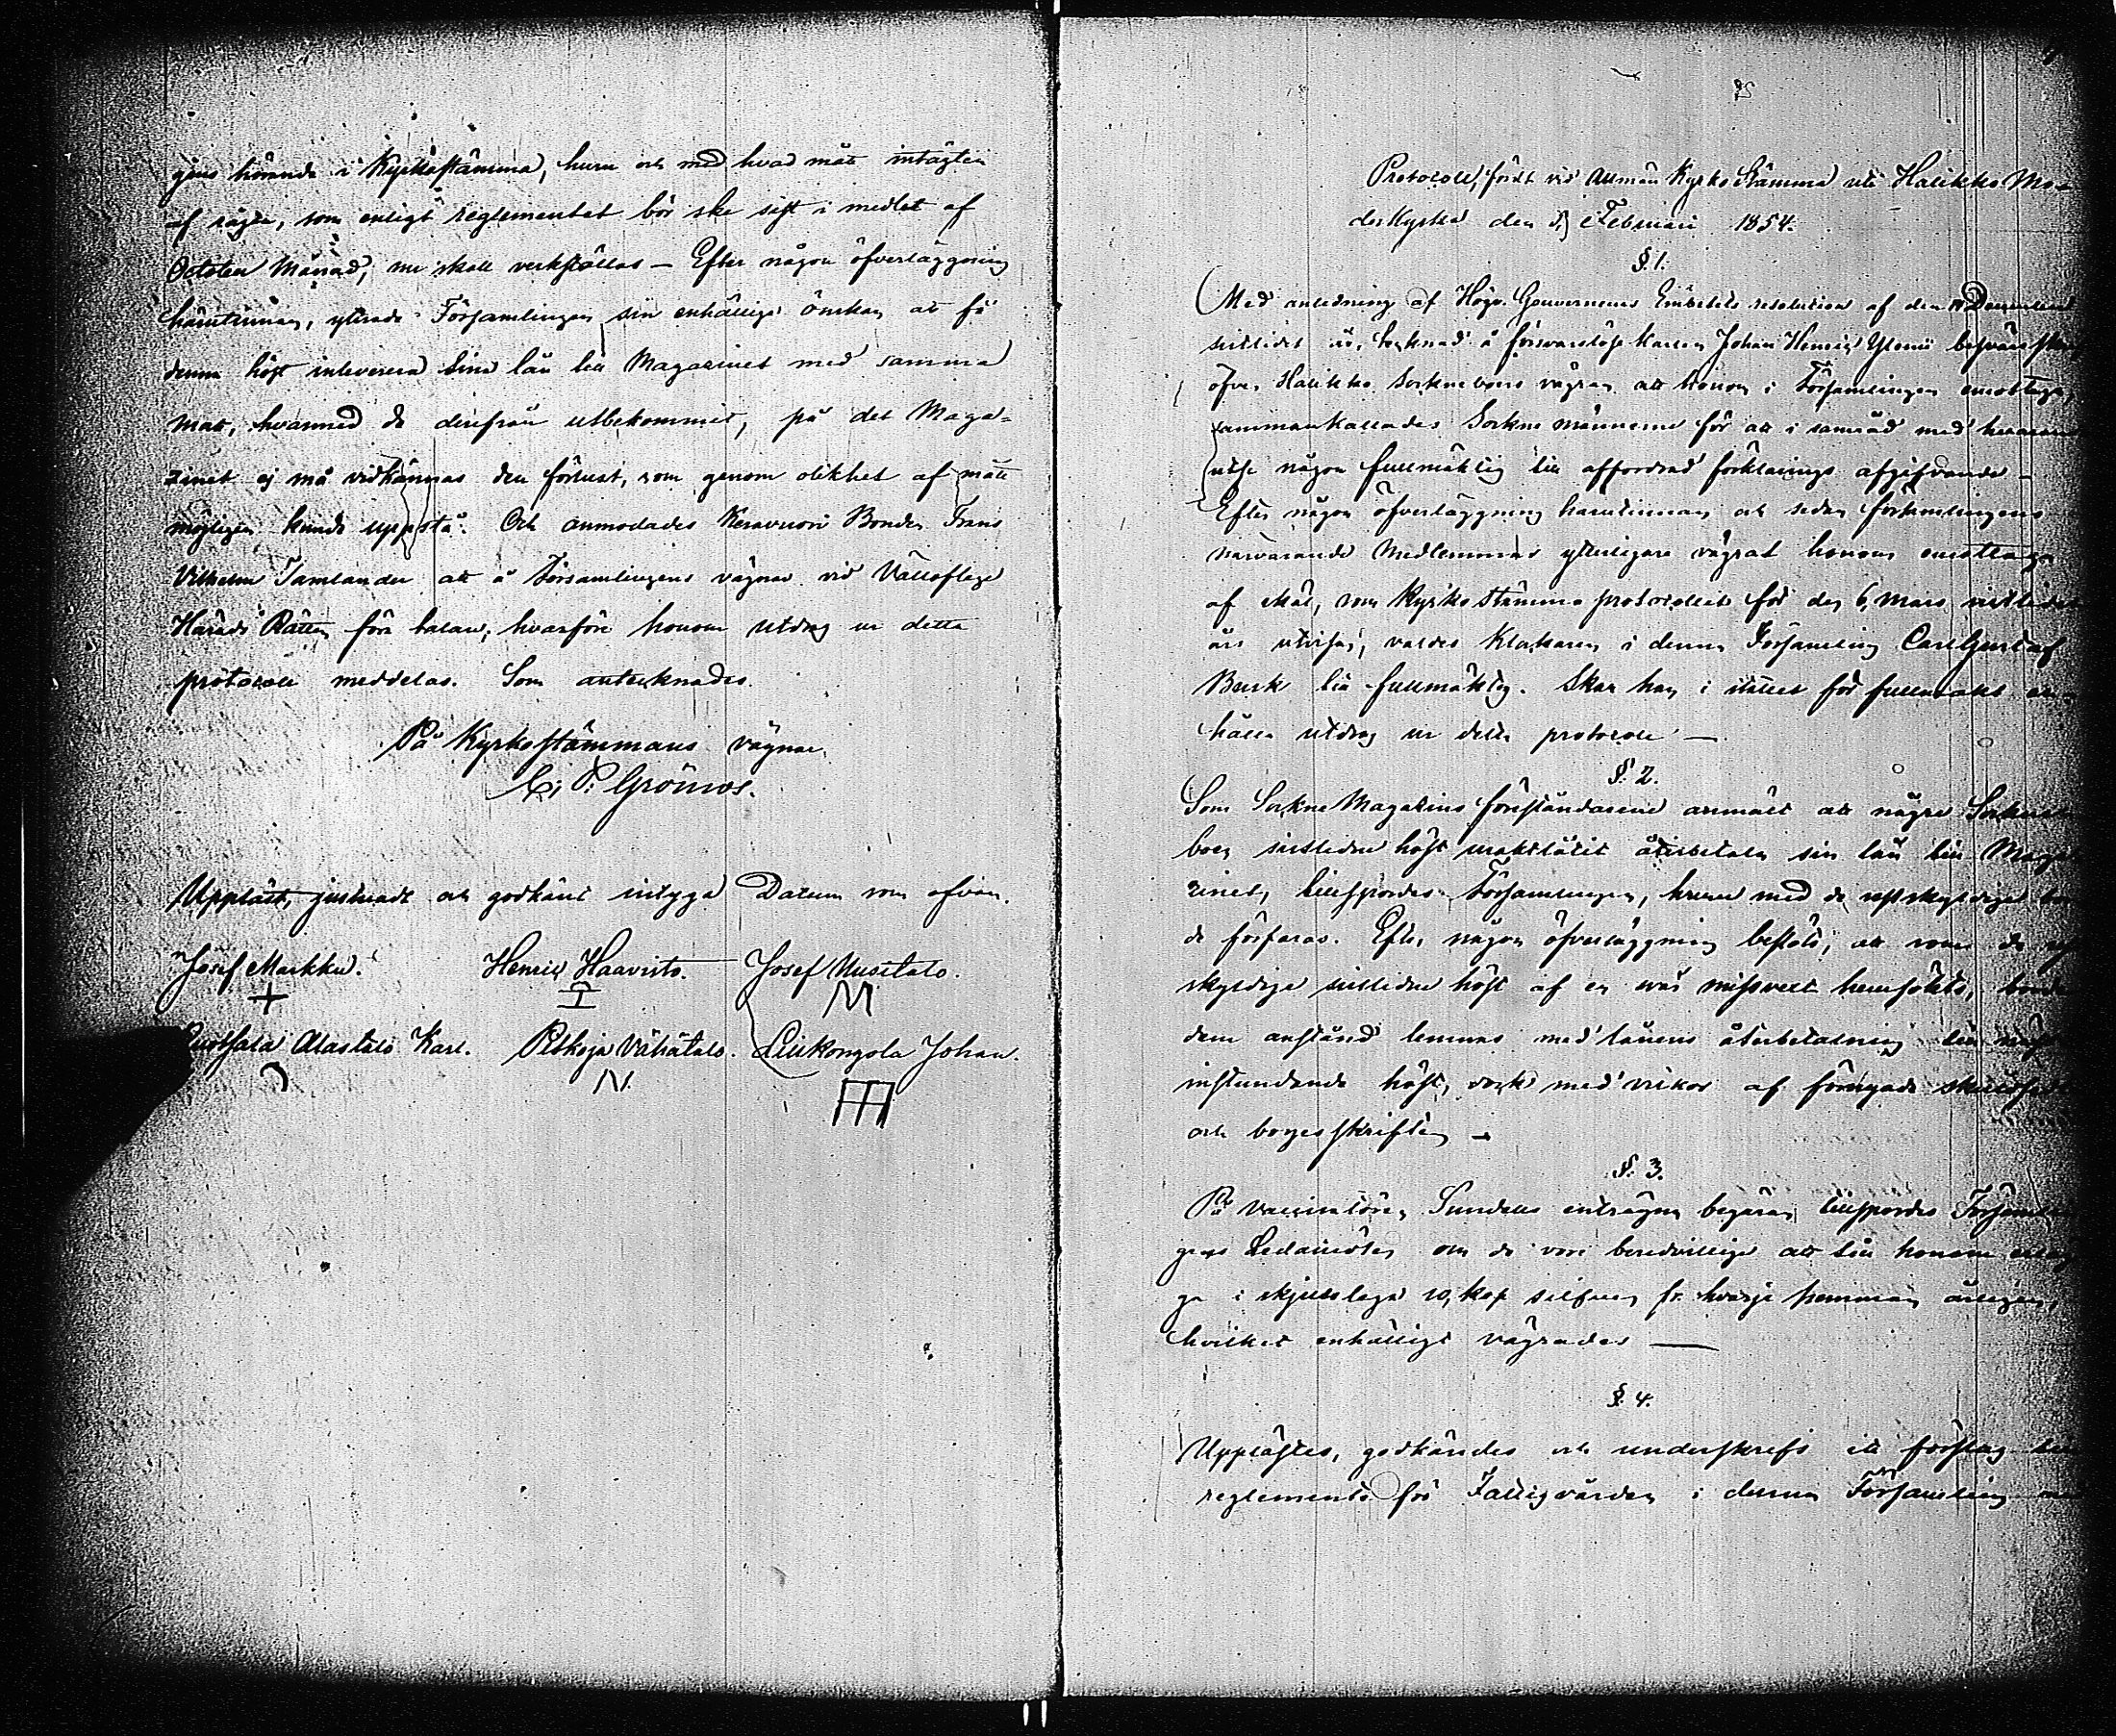 gens hörande i Kyrkostämma, huru och med hvad mått intägten
af råge, som enligt reglementet bör ske sist i medlet af
October Månad, nu skall verkställas — Efter någon öfverläggning
härutinnan, yttrade Församlingen sin enhälliga önskan att få
denna höst inleverera sina lån till Magazinet med samma
mått, hvarmed de derifrån utbekommit, på det Maga-
zinet ej må vidkännas den förlust, som genom olikhet af mått
möjligen kunde uppstå. Och anmodades Keravuori Bonden Frans
Vilhelm Tamlander att å Församlingens vägnar vid
Härads Rätten föra talan; hvarföre honom utdrag ur detta
protocoll meddelas. Som antecknades.
På Kyrkostämmans vägnar
P. Grönros.
Uppläst, justeradt och godkänt intyga Datum som ofvan.
Josef Markku. Henric Haavisto. Josef Uusitalo.
Alastalo Karl. Petkoja Vähätalo. Lillkongola Johan.
IV.
Protocoll, fördt vid Allmän Kyrko Stämma uti Halikko Mo-
derkyrka den Februari 1854.
§. 1.
Med anledning af Högv. Gouverneurs Embetets resolution af den December
sistlidet år, tecknad å försvarslöse Karlen Johan Henric besvärsskrift
öfver Halikko Socknebors vägran att honom i Församlingen emottaga,
sammankallades Sockne männerne för att i samråd med
utse någon fullmäktig till affordrad förklarings afgifvande —
Efter någon öfverläggning härutinnan och sedan församlingens
närvarande Medlemmar ytterligare vägrat honom emottaga
af skäl, som Kyrkostämmo protocollet för den 6, Mars sistlidet
års utvisar, valdes Klockaren i denna Församling Carl Gustaf
Busk till fullmäktig. Skall han i stället för fullmakt er-
hålla utdrag ur detta protocoll —
§. 2.
Som Sockne Magazins föreståndarene anmält att några Sockne
boer sistledne höst uraktlåtit återbetala sin lån till Maga
zinet, tillspordes Församlingen, huru med de restskyldige bor
de förfaras. Efter någon öfverläggning beslöts, att som de
skyldige sistledne höst af en svår missvext hemsökts, borde
dem anstånd lemnas med lånens återbetalning till näst
instundande höst, dock med vilkor af förnyade skuldsedlar
och borgesskriften —
§. 3.
På vaccinatören Sundells enträgna begäran tillspordes Församlin
gens Ledamöter om de vore beredvillige att till honom erläg
ga i skjutslega 10, kop silfver fr. hvarje hemman årligen,
hvilket enhälligt vägrades —
§. 4.
Upplästes, godkändes och underskrefs ett förslag till
reglemente för Fattigvården i denna Församling